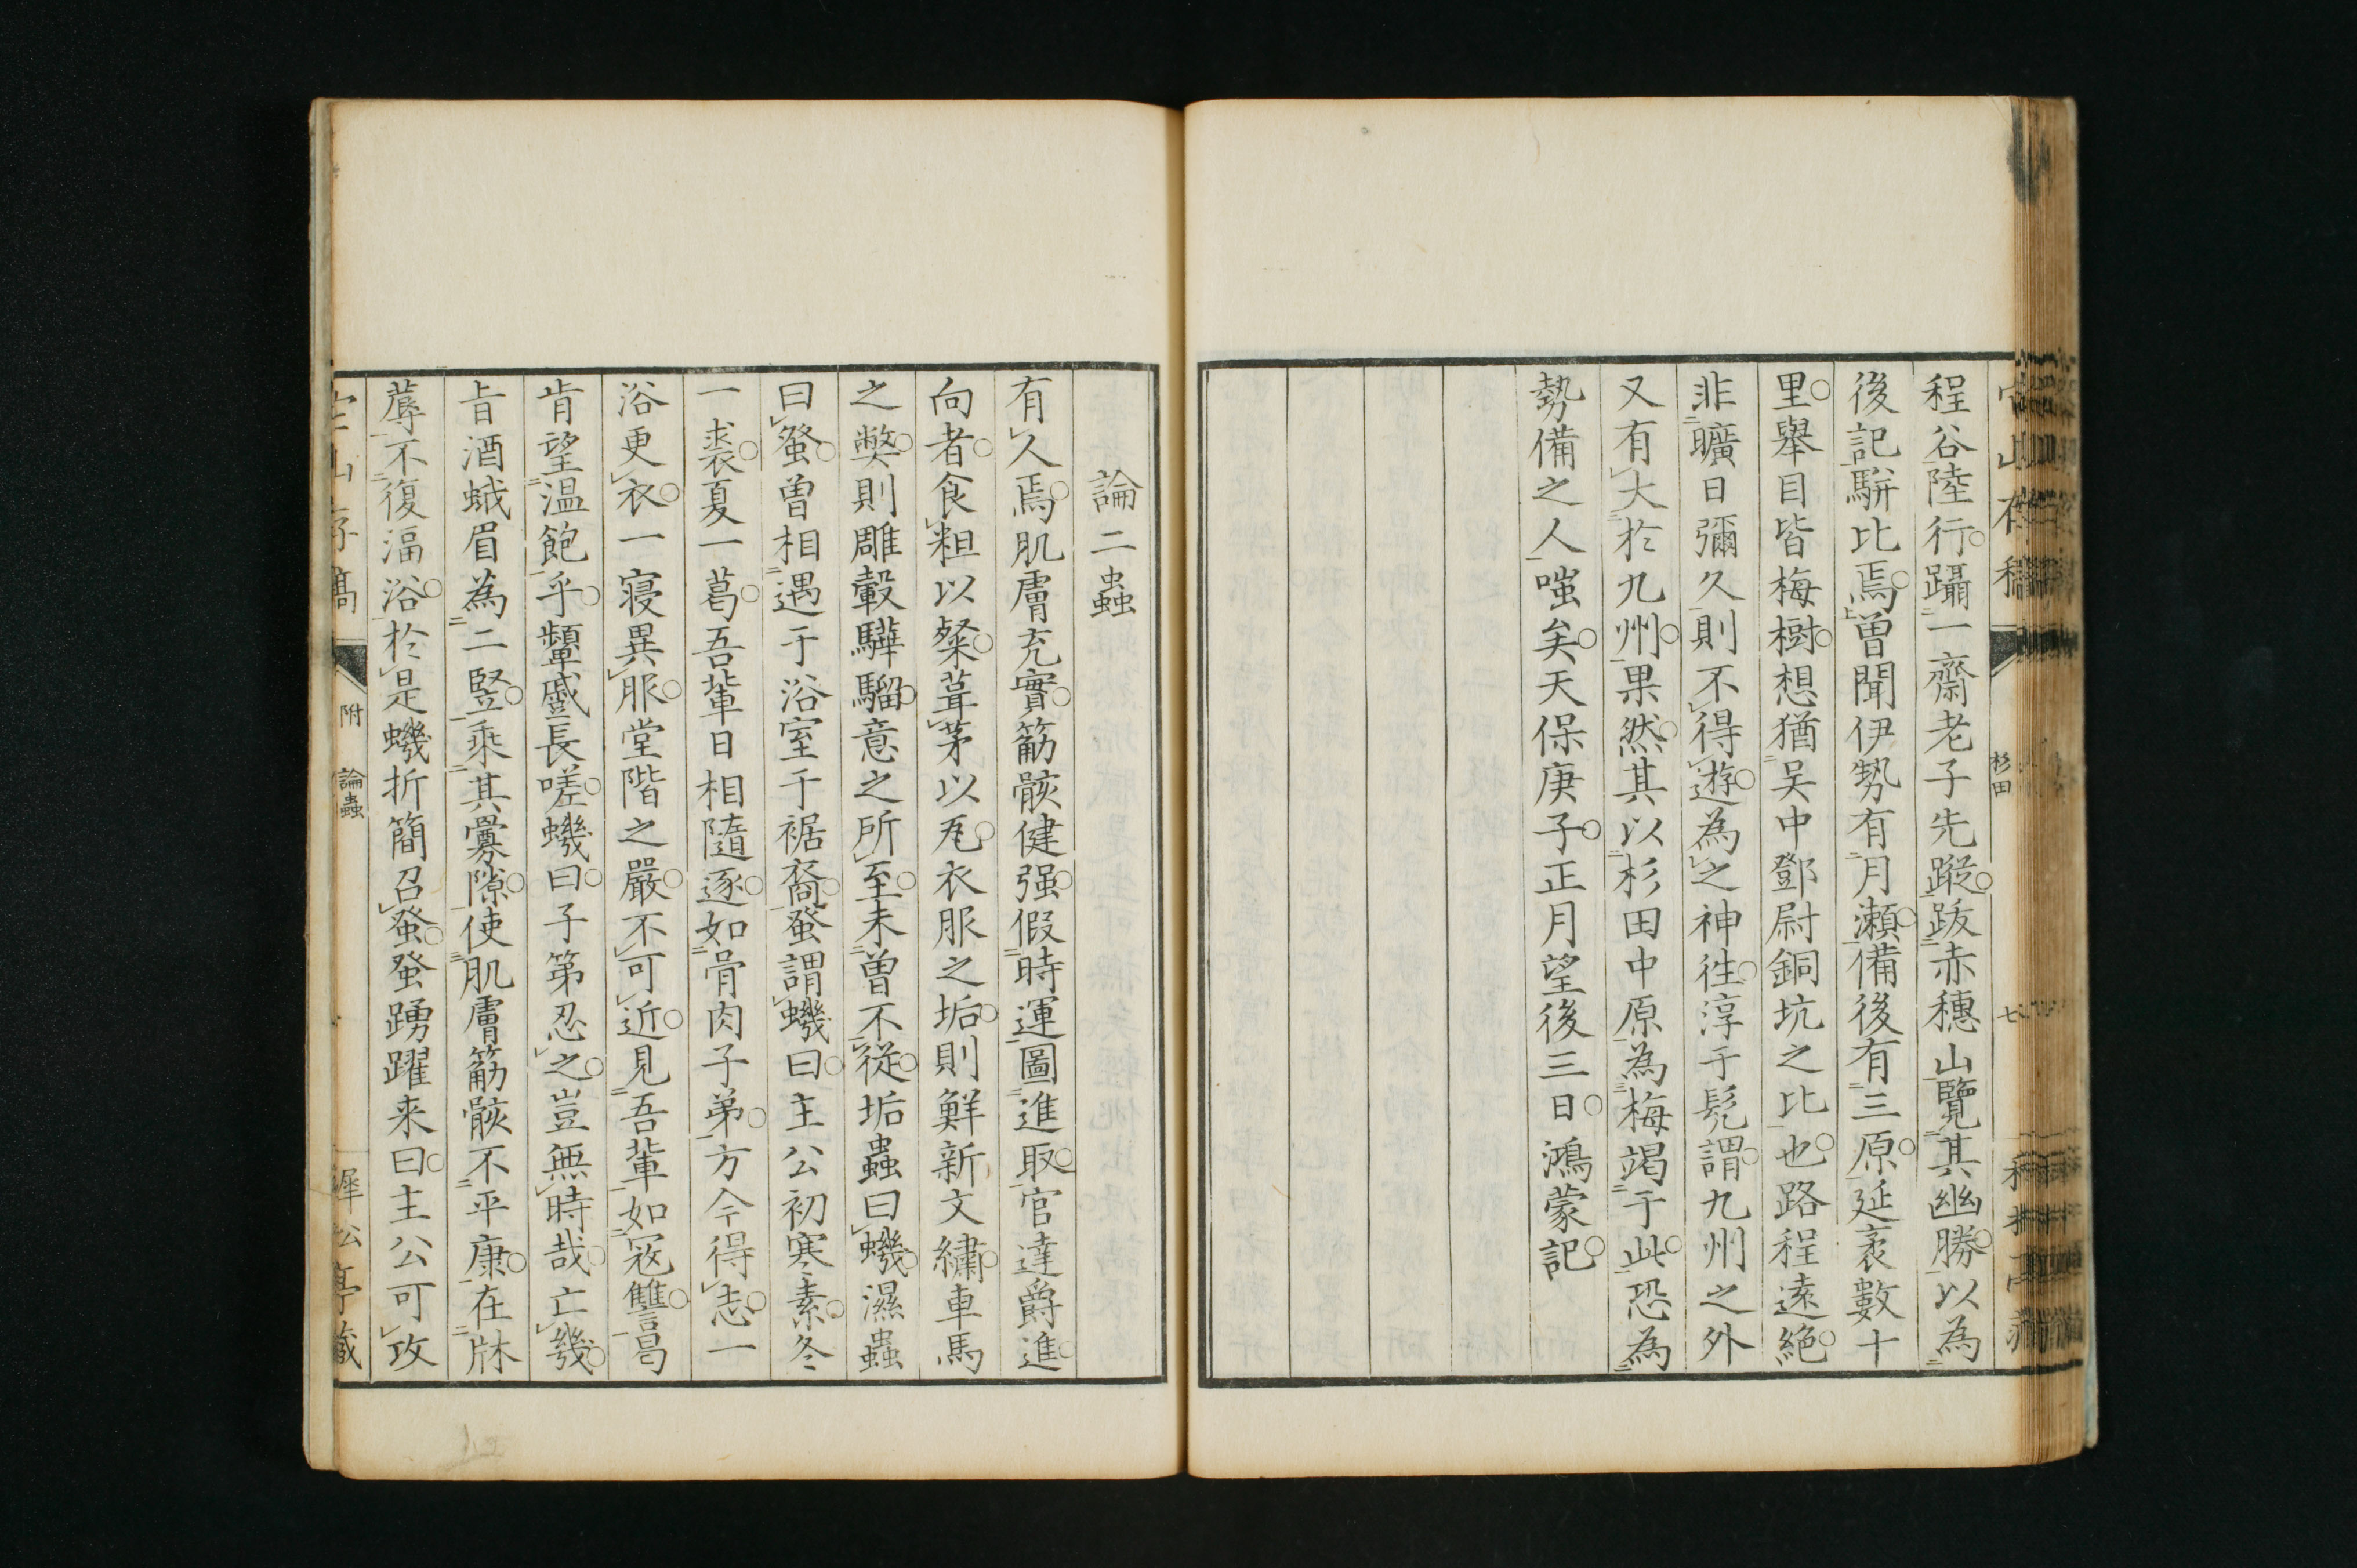 杉田
七
程谷陸行躡一齋老子先蹤跋赤穗山覽其幽勝以為
後記駢比焉曾聞伊勢有月瀨備後有三原延袤數十
里舉目皆梅樹想猶吴中鄧尉銅坑之比也路程遠絶
非曠日彌久則不得遊為之神徃淳于髡謂九州之外
又有大於九州果然其以杉田中原為梅竭于此恐為
勢備之人嗤矣天保庚子正月望後三日鴻蒙記
論二蟲
有人焉肌膚充實筋骸健强假時運圖進取官達爵進
向者食粗以粲葺茅以瓦衣服之垢則鮮新文繡車馬
之獘則雕轂驊騮意之所至未曾不從垢蟲曰蟣濕蟲
曰蛩曾相遇于浴室于裾裔蛩謂蟣曰主公初寒素冬
一裘夏一葛吾輩日相隨逐如骨肉子弟方今得志一
浴更衣一寢異服堂階之嚴不可近見吾輩如寇讐曷
肯望温飽乎顰蹙長嗟蟣曰子第忍之豈無時哉亡幾
旨酒蛾眉為二竪乘其釁隙使肌膚筋骸不平康在牀
蓐不復湢浴於是蟣折簡召蛩蛩踴躍来曰主公可攻
附 論蟲